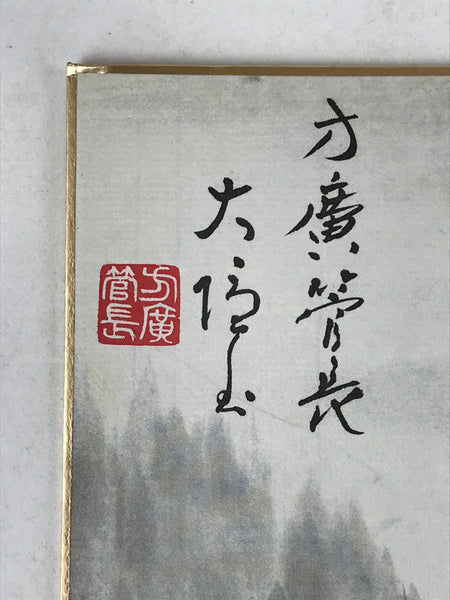 方廣管長
大隠
方廣
管長